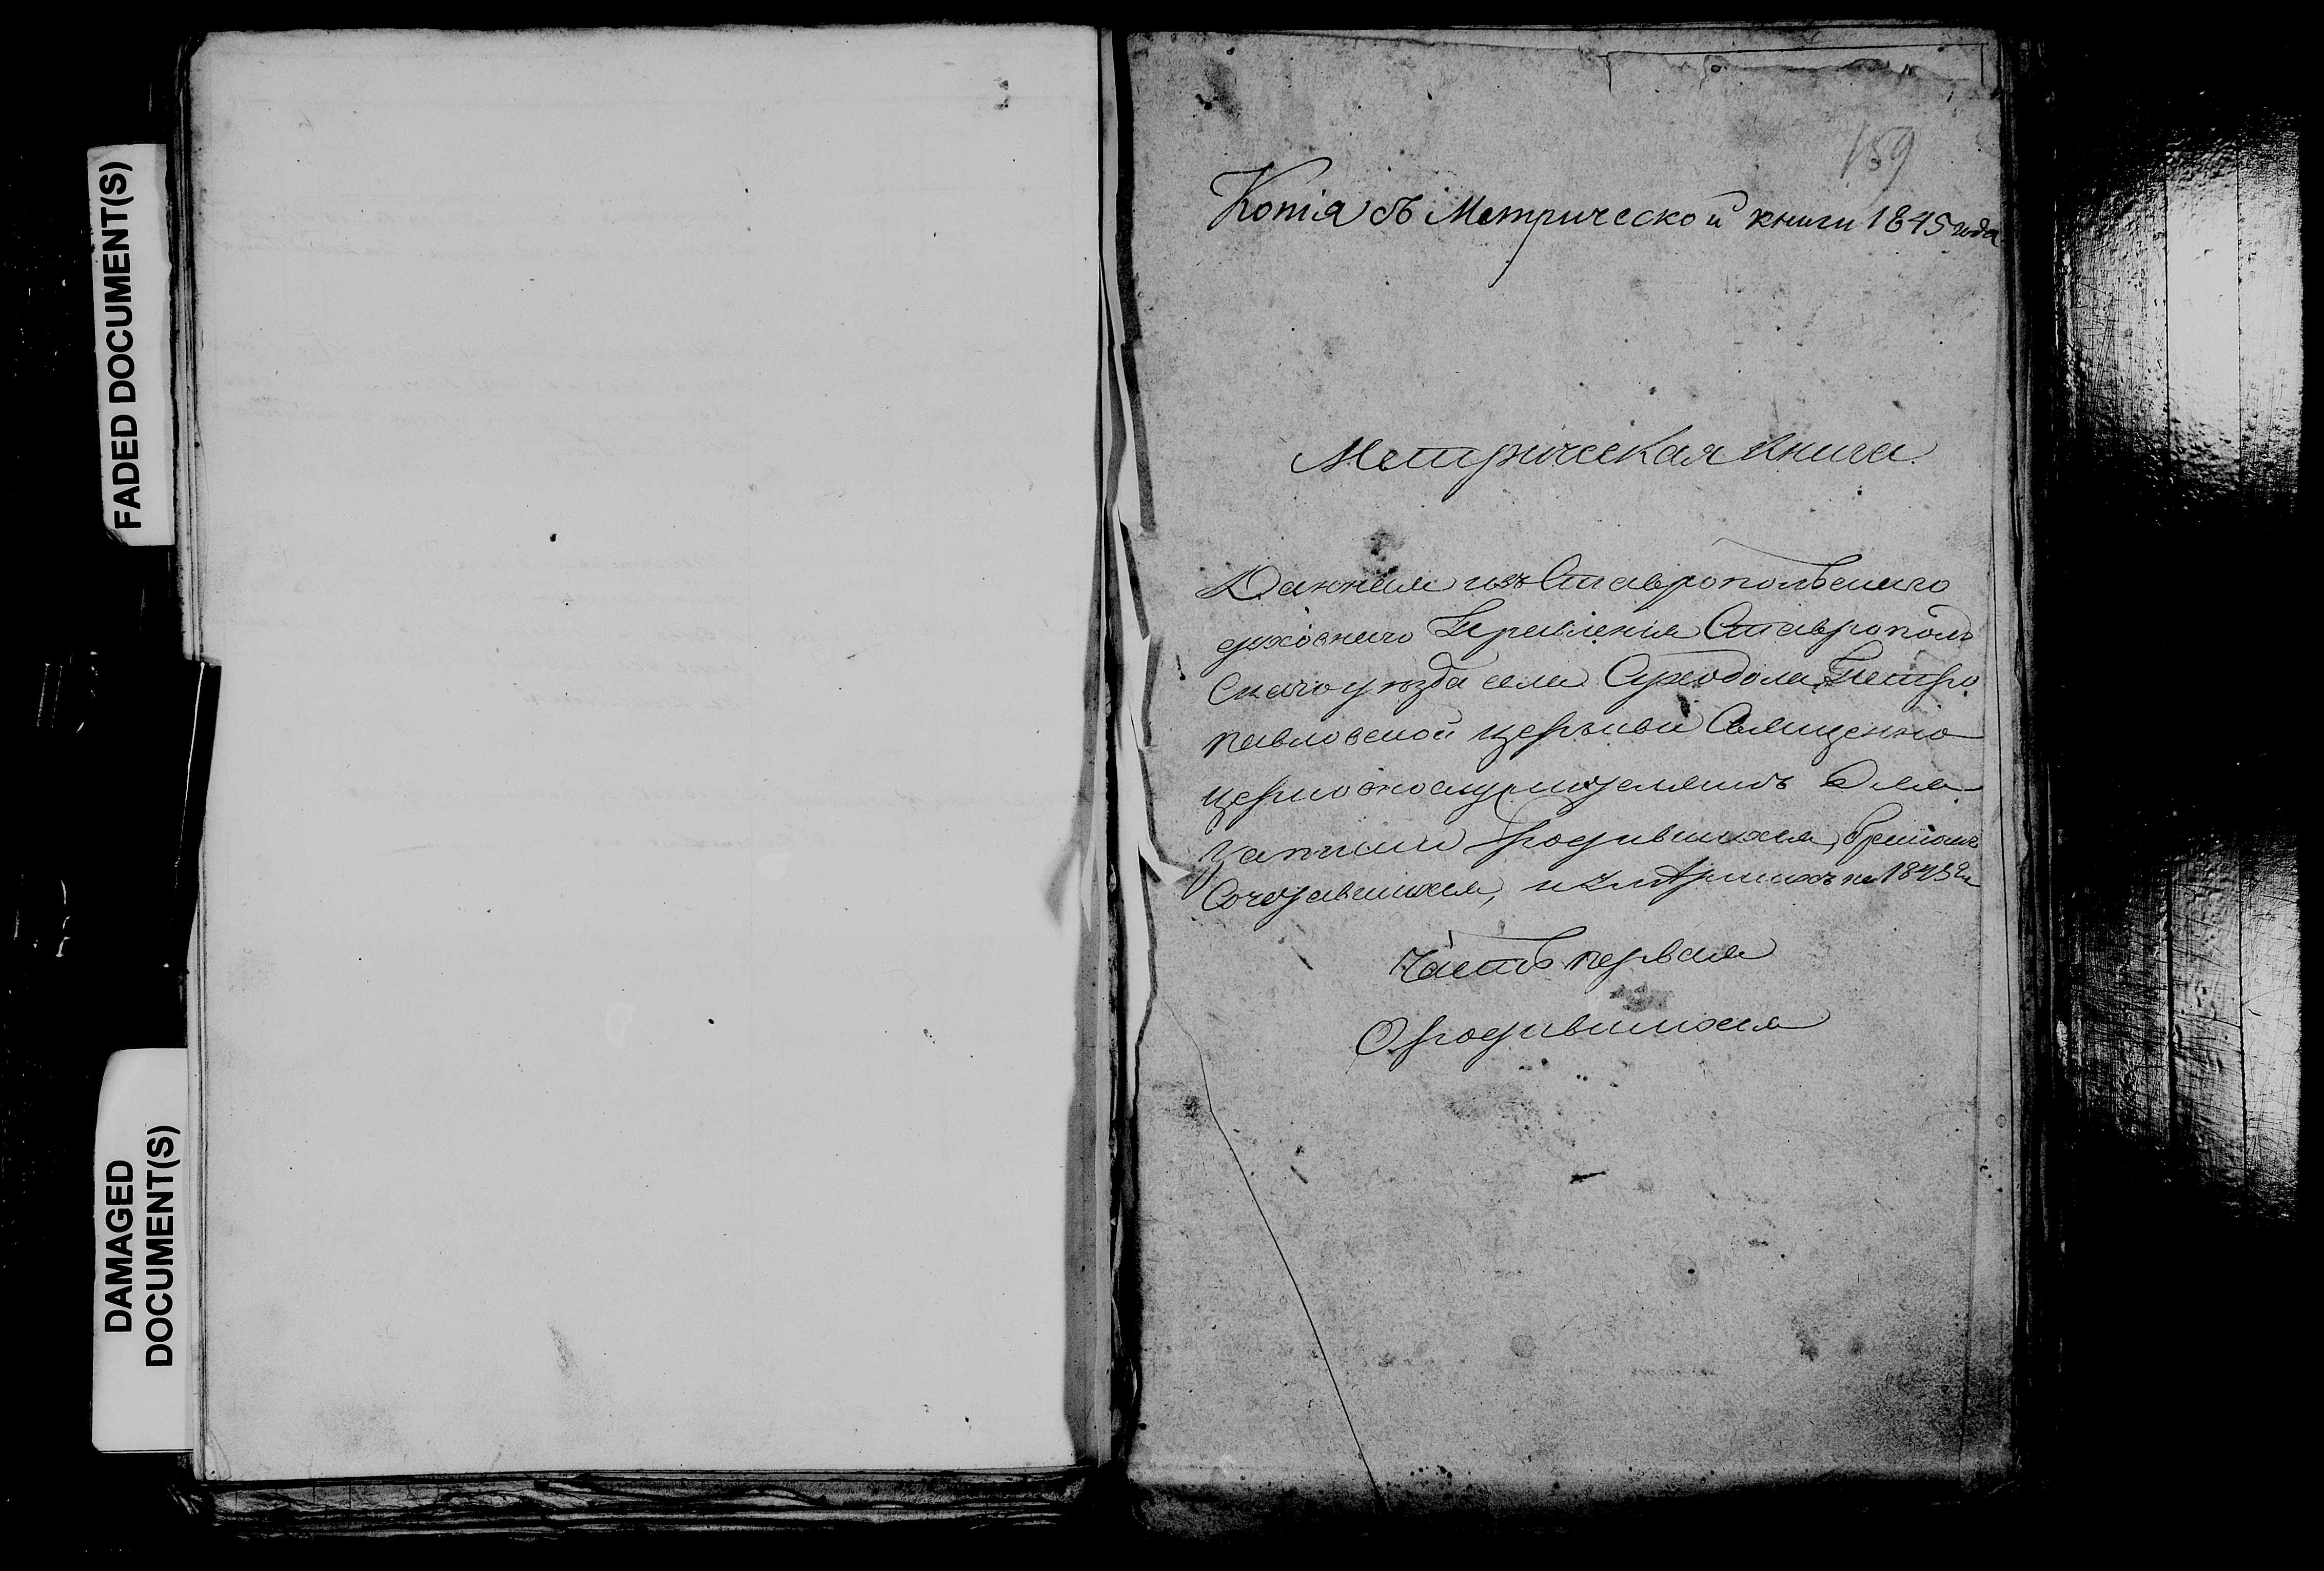 FADED DOCUMENT(S)
DAMAGED
DOCUMENT(S)
159
Копія съ Метрической книги 1845 года
Метрическая книга
Данная изъ Ставропольскаго
духовнаго Правленія Ставрополь
скаго уѣзда села Суходола Петро
павловской церкви Священно
церковнослужителямъ для
записки родившихся, бракомъ
Сочетавшихся, и умершихъ на 1845 г.
Часть первая
О родившихся